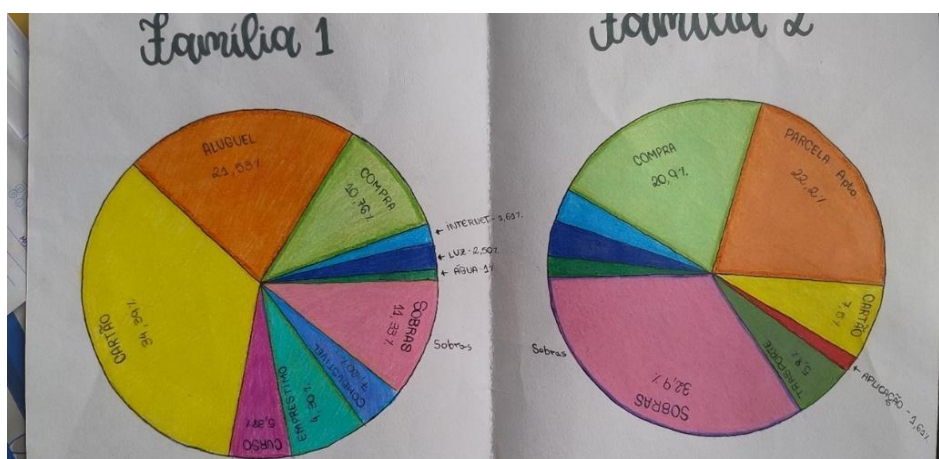 Família 1
Família 2
ALUGUEL
21,53%
COMPRA
10,76%
← INTERNET - 1,61%
← LUZ - 2,50%
← ÁGUA - 1%
SOBRAS
11,33%
Sobras
COMBUSTÍVEL
EMPRÉSTIMO
4,30%
CURSO
CARTÃO
COMPRA
20,9%
PARCELA Apto
22,2%
CARTÃO
← APLICAÇÃO - 1,61%
TRASPORTE
5,8%
SOBRAS
32,9%
Sobras